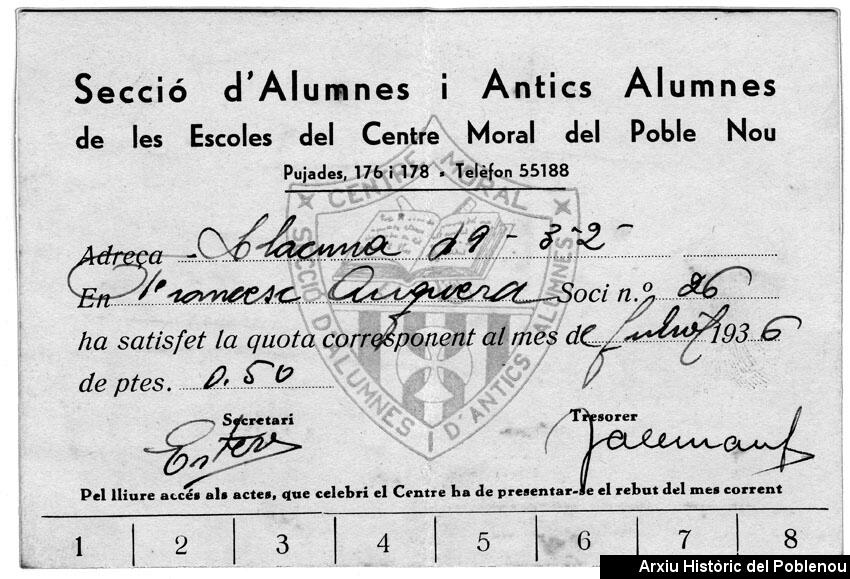 Secció d'Alumnes i Antics Alumnes
de les Escoles del Centre Moral del Poble Nou
Pujades, 176 i 178 - Telèfon 55188
CENTRE MORAL
SECCIÓ D'ALUMNES I D'ANTICS ALUMNES
Adreça - Llacuna 29 - 3-2-
En Francesc Anguera Soci n.º 26
ha satisfet la quota corresponent al mes de Juliol 1936
de ptes. 0.50
Secretari Tresorer
Esteve
Pel lliure accés als actes, que celebri el Centre ha de presentar-se el rebut del mes corrent
1 2 3 4 5 6 7 8
Arxiu Històric del Poblenou